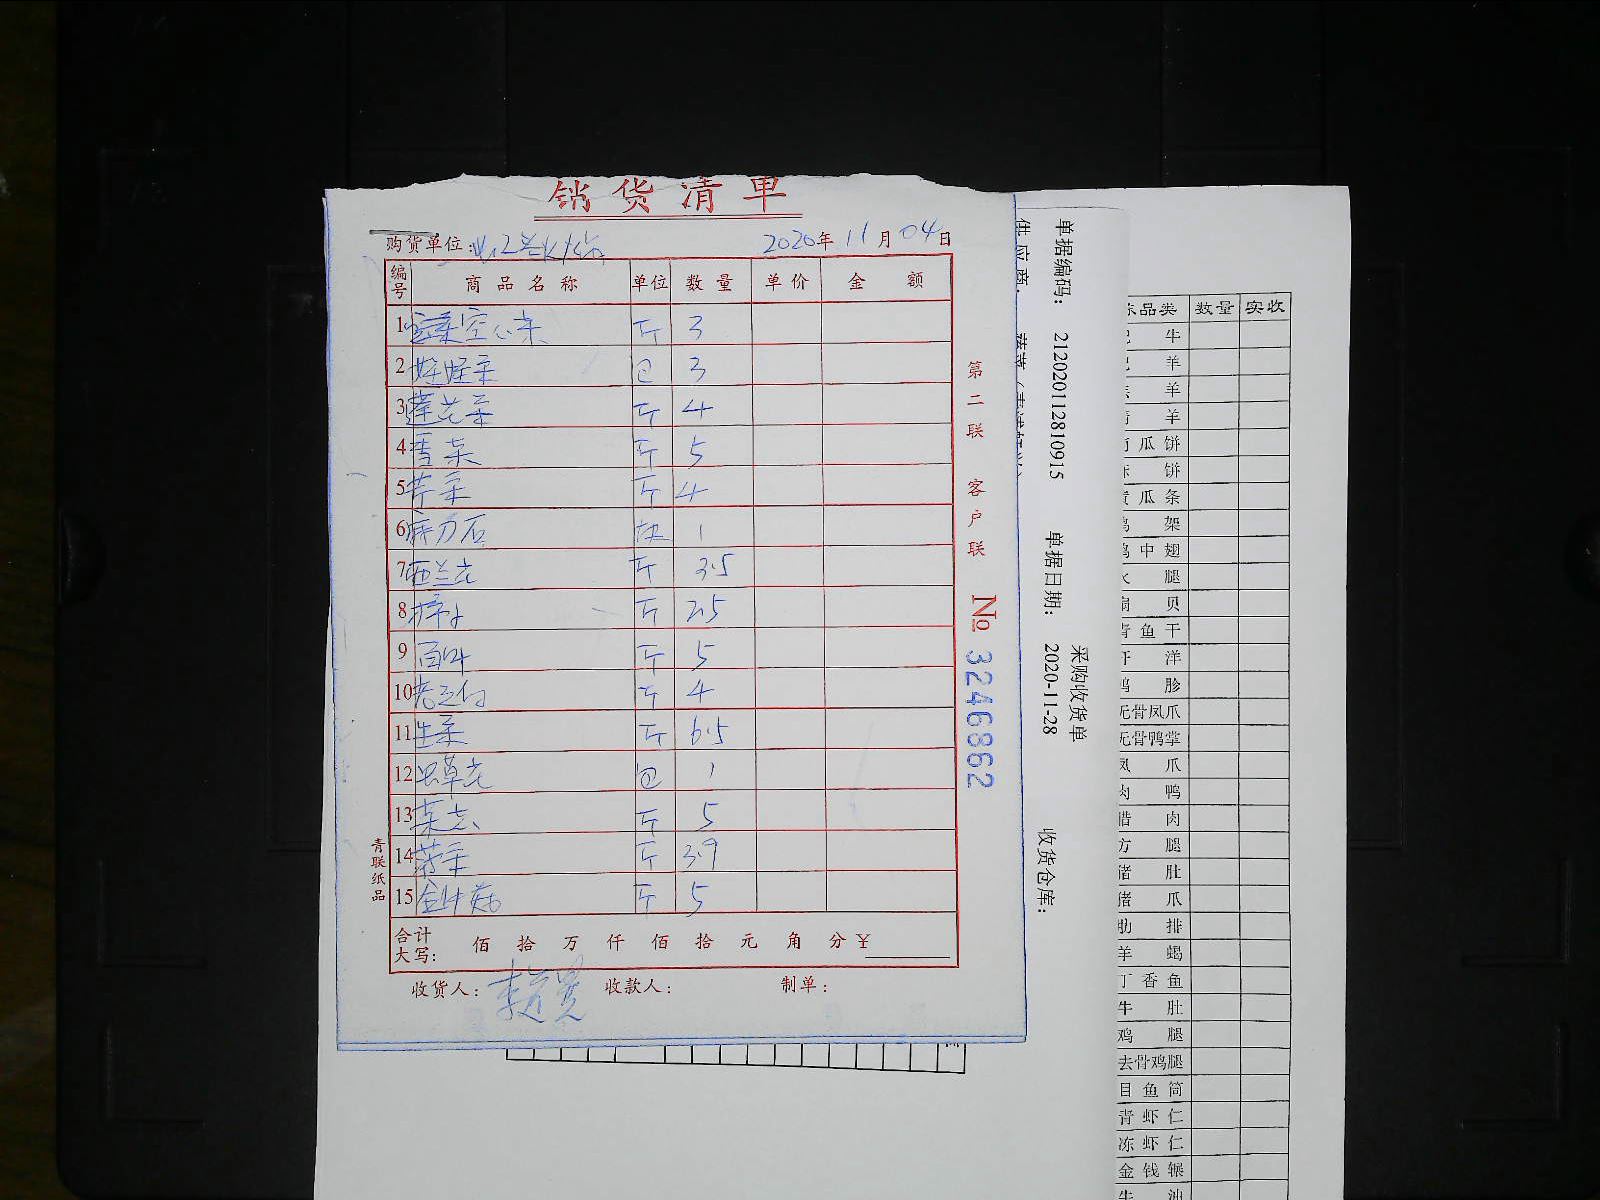 销货清单
购货单位: 2020年11月04日
编号 商品名称 单位 数量 单价 金额
1 空心菜 斤 3
2 娃娃菜 包 3
3 莲花菜 斤 4
4 雪菜 斤 5
5 芹菜 斤 4
6 麻力石 块 1
7 西兰花 斤 3.5
8 斤 25
9 百叶 斤 5
10 斤 4
11 生菜 斤 6.5
12 虫草花 包 1
13 斤 5
14 斤 3.9
15 金针菇 斤 5
合计大写: 佰 拾 万 仟 佰 拾 元 角 分 ¥
收货人: 收款人: 制单:
青联纸品
第二联 客户联
№ 3246862
采购收货单
单据编码: 212020112810915 单据日期: 2020-11-28 收货仓库:
供应商:
品类 数量 实收
牛
羊
羊
羊
瓜饼
饼
瓜条
架
中翅
腿
贝
青鱼干
开洋
鸡胗
无骨凤爪
无骨鸭掌
凤爪
肉鸭
腊肉
方腿
猪肚
猪爪
肋排
羊蝎
丁香鱼
牛肚
鸡腿
去骨鸡腿
目鱼筒
青虾仁
冻虾仁
金钱
牛油